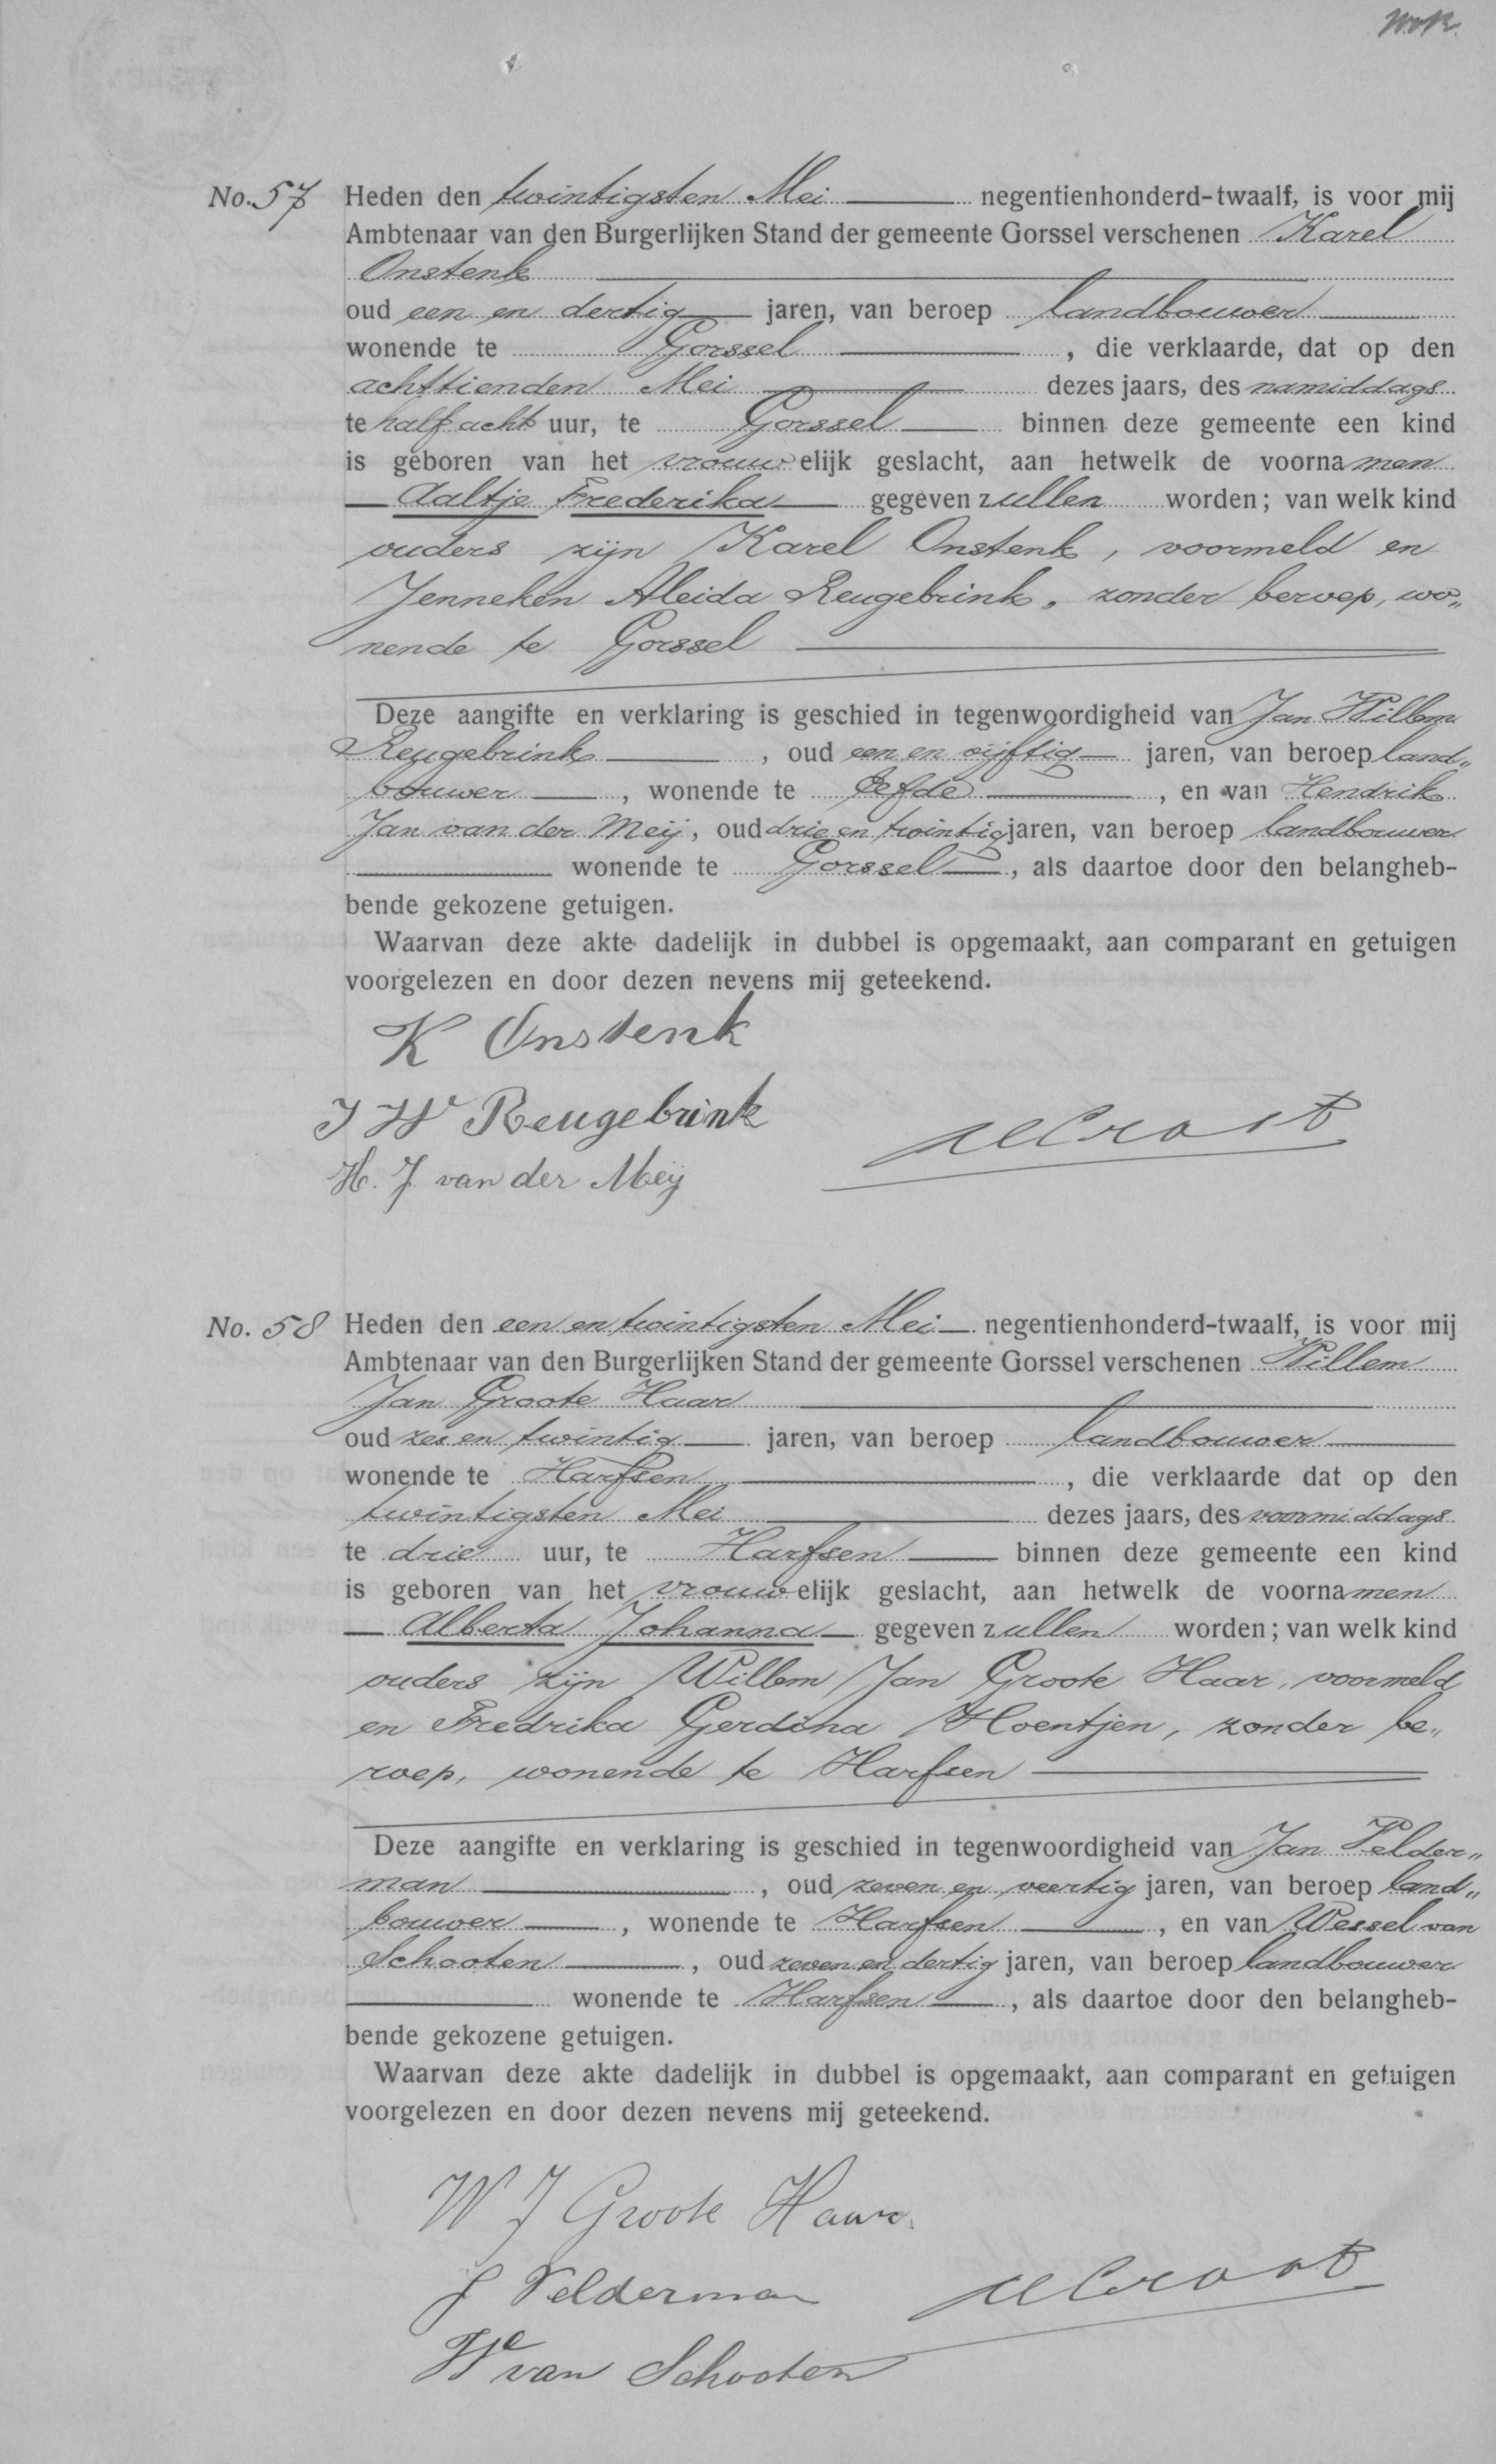 No. 57 Heden den twintigsten Mei negentienhonderd-twaalf, is voor mij
Ambtenaar van den Burgerlijken Stand der gemeente Gorssel verschenen Karel
Onstenk
oud een en dertig jaren, van beroep landbouwer
wonende te Gorssel, die verklaarde, dat op den
achttienden Mei dezes jaars, des namiddags
te half acht uur, te Gorssel binnen deze gemeente een kind
is geboren van het vrouwelijk geslacht, aan hetwelk de voornamen
Aaltje Frederika gegeven zullen worden; van welk kind
ouders zijn Karel Onstenk, voormeld en
Jenneken Aleida Reugebrink, zonder beroep, wo„
nende te Gorssel
Deze aangifte en verklaring is geschied in tegenwoordigheid van Jan Willem
Reugebrink, oud een en vijftig jaren, van beroep land„
bouwer, wonende te Eefde, en van Hendrik
Jan van der Meij, oud drie en twintig jaren, van beroep landbouwer
wonende te Gorssel, als daartoe door den belangheb-
bende gekozene getuigen.
Waarvan deze akte dadelijk in dubbel is opgemaakt, aan comparant en getuigen
voorgelezen en door dezen nevens mij geteekend.
K Onstenk
J W Reugebrink
H. J. van der Meij
No. 58 Heden den een en twintigsten Mei negentienhonderd-twaalf, is voor mij
Ambtenaar van den Burgerlijken Stand der gemeente Gorssel verschenen Willem
Jan Groote Haar
oud zes en twintig jaren, van beroep landbouwer
wonende te Harfsen, die verklaarde dat op den
twintigsten Mei dezes jaars, des voormiddags
te drie uur, te Harfsen binnen deze gemeente een kind
is geboren van het vrouwelijk geslacht, aan hetwelk de voornamen
Alberta Johanna gegeven zullen worden; van welk kind
ouders zijn Willem Jan Groote Haar, voormeld
en Fredrika Gerdina Hoentjen, zonder be„
roep, wonende te Harfsen
Deze aangifte en verklaring is geschied in tegenwoordigheid van Jan Velder„
man, oud zeven en veertig jaren, van beroep land„
bouwer, wonende te Harfsen, en van Wessel van
Schooten, oud zeven en dertig jaren, van beroep landbouwer
wonende te Harfsen, als daartoe door den belangheb-
bende gekozene getuigen.
Waarvan deze akte dadelijk in dubbel is opgemaakt, aan comparant en getuigen
voorgelezen en door dezen nevens mij geteekend.
W J Groote Haar.
J Velderman
W van Schooten